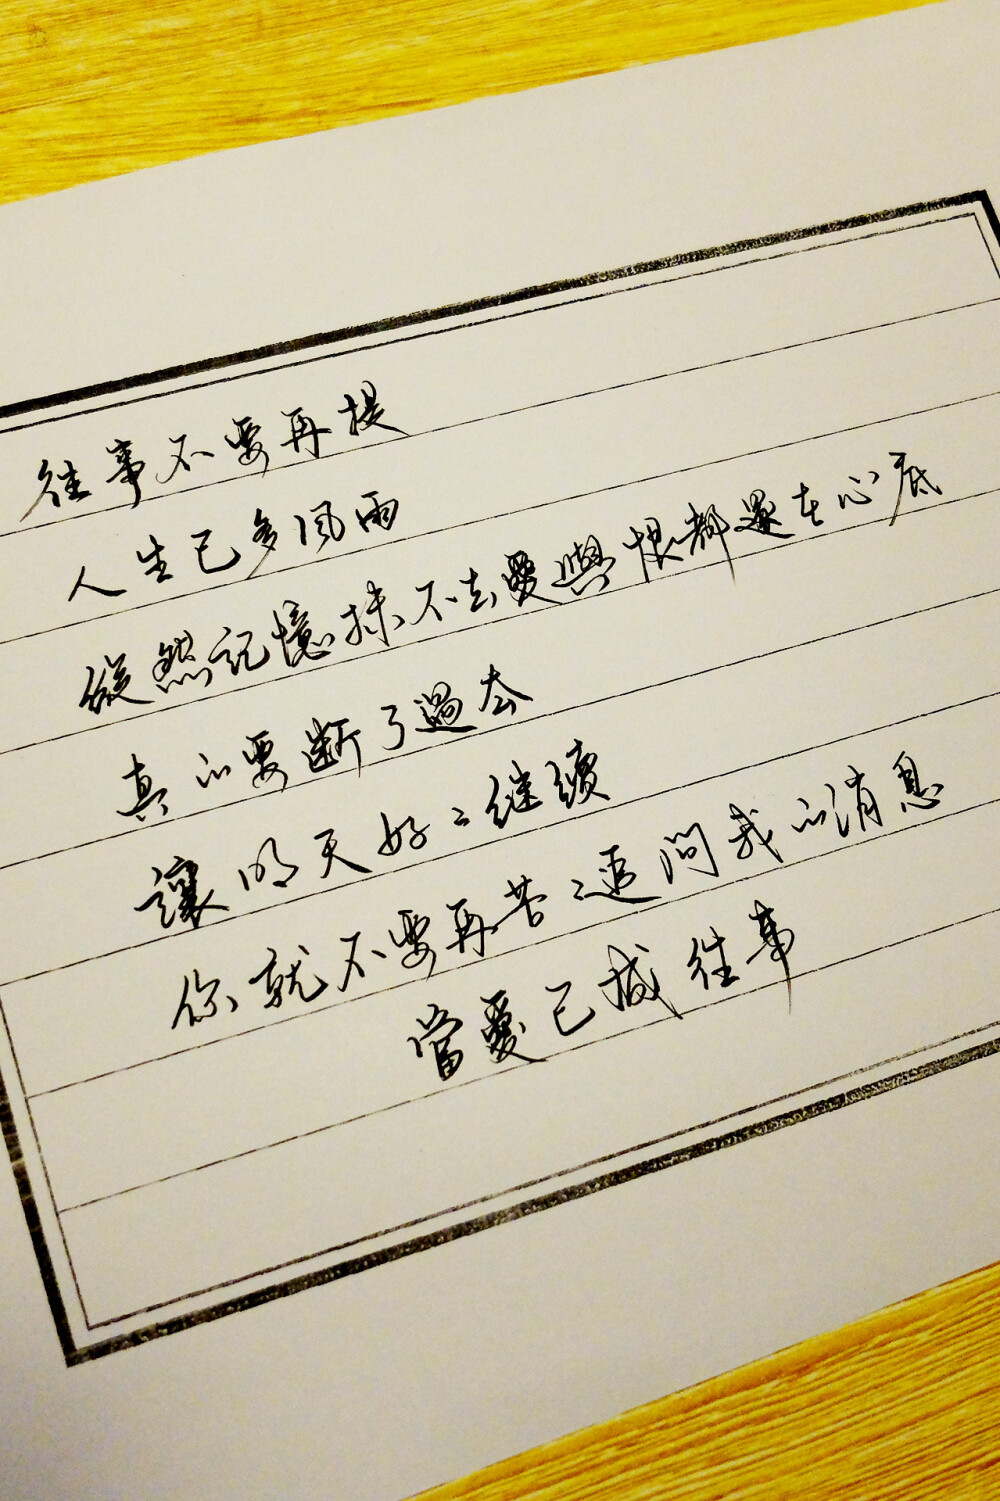 往事不要再提
人生已多风雨
縱然記憶抹不去愛與恨都還在心底
真的要断了過去
讓明天好〻继續
你就不要再苦〻追问我的消息
當愛已成往事